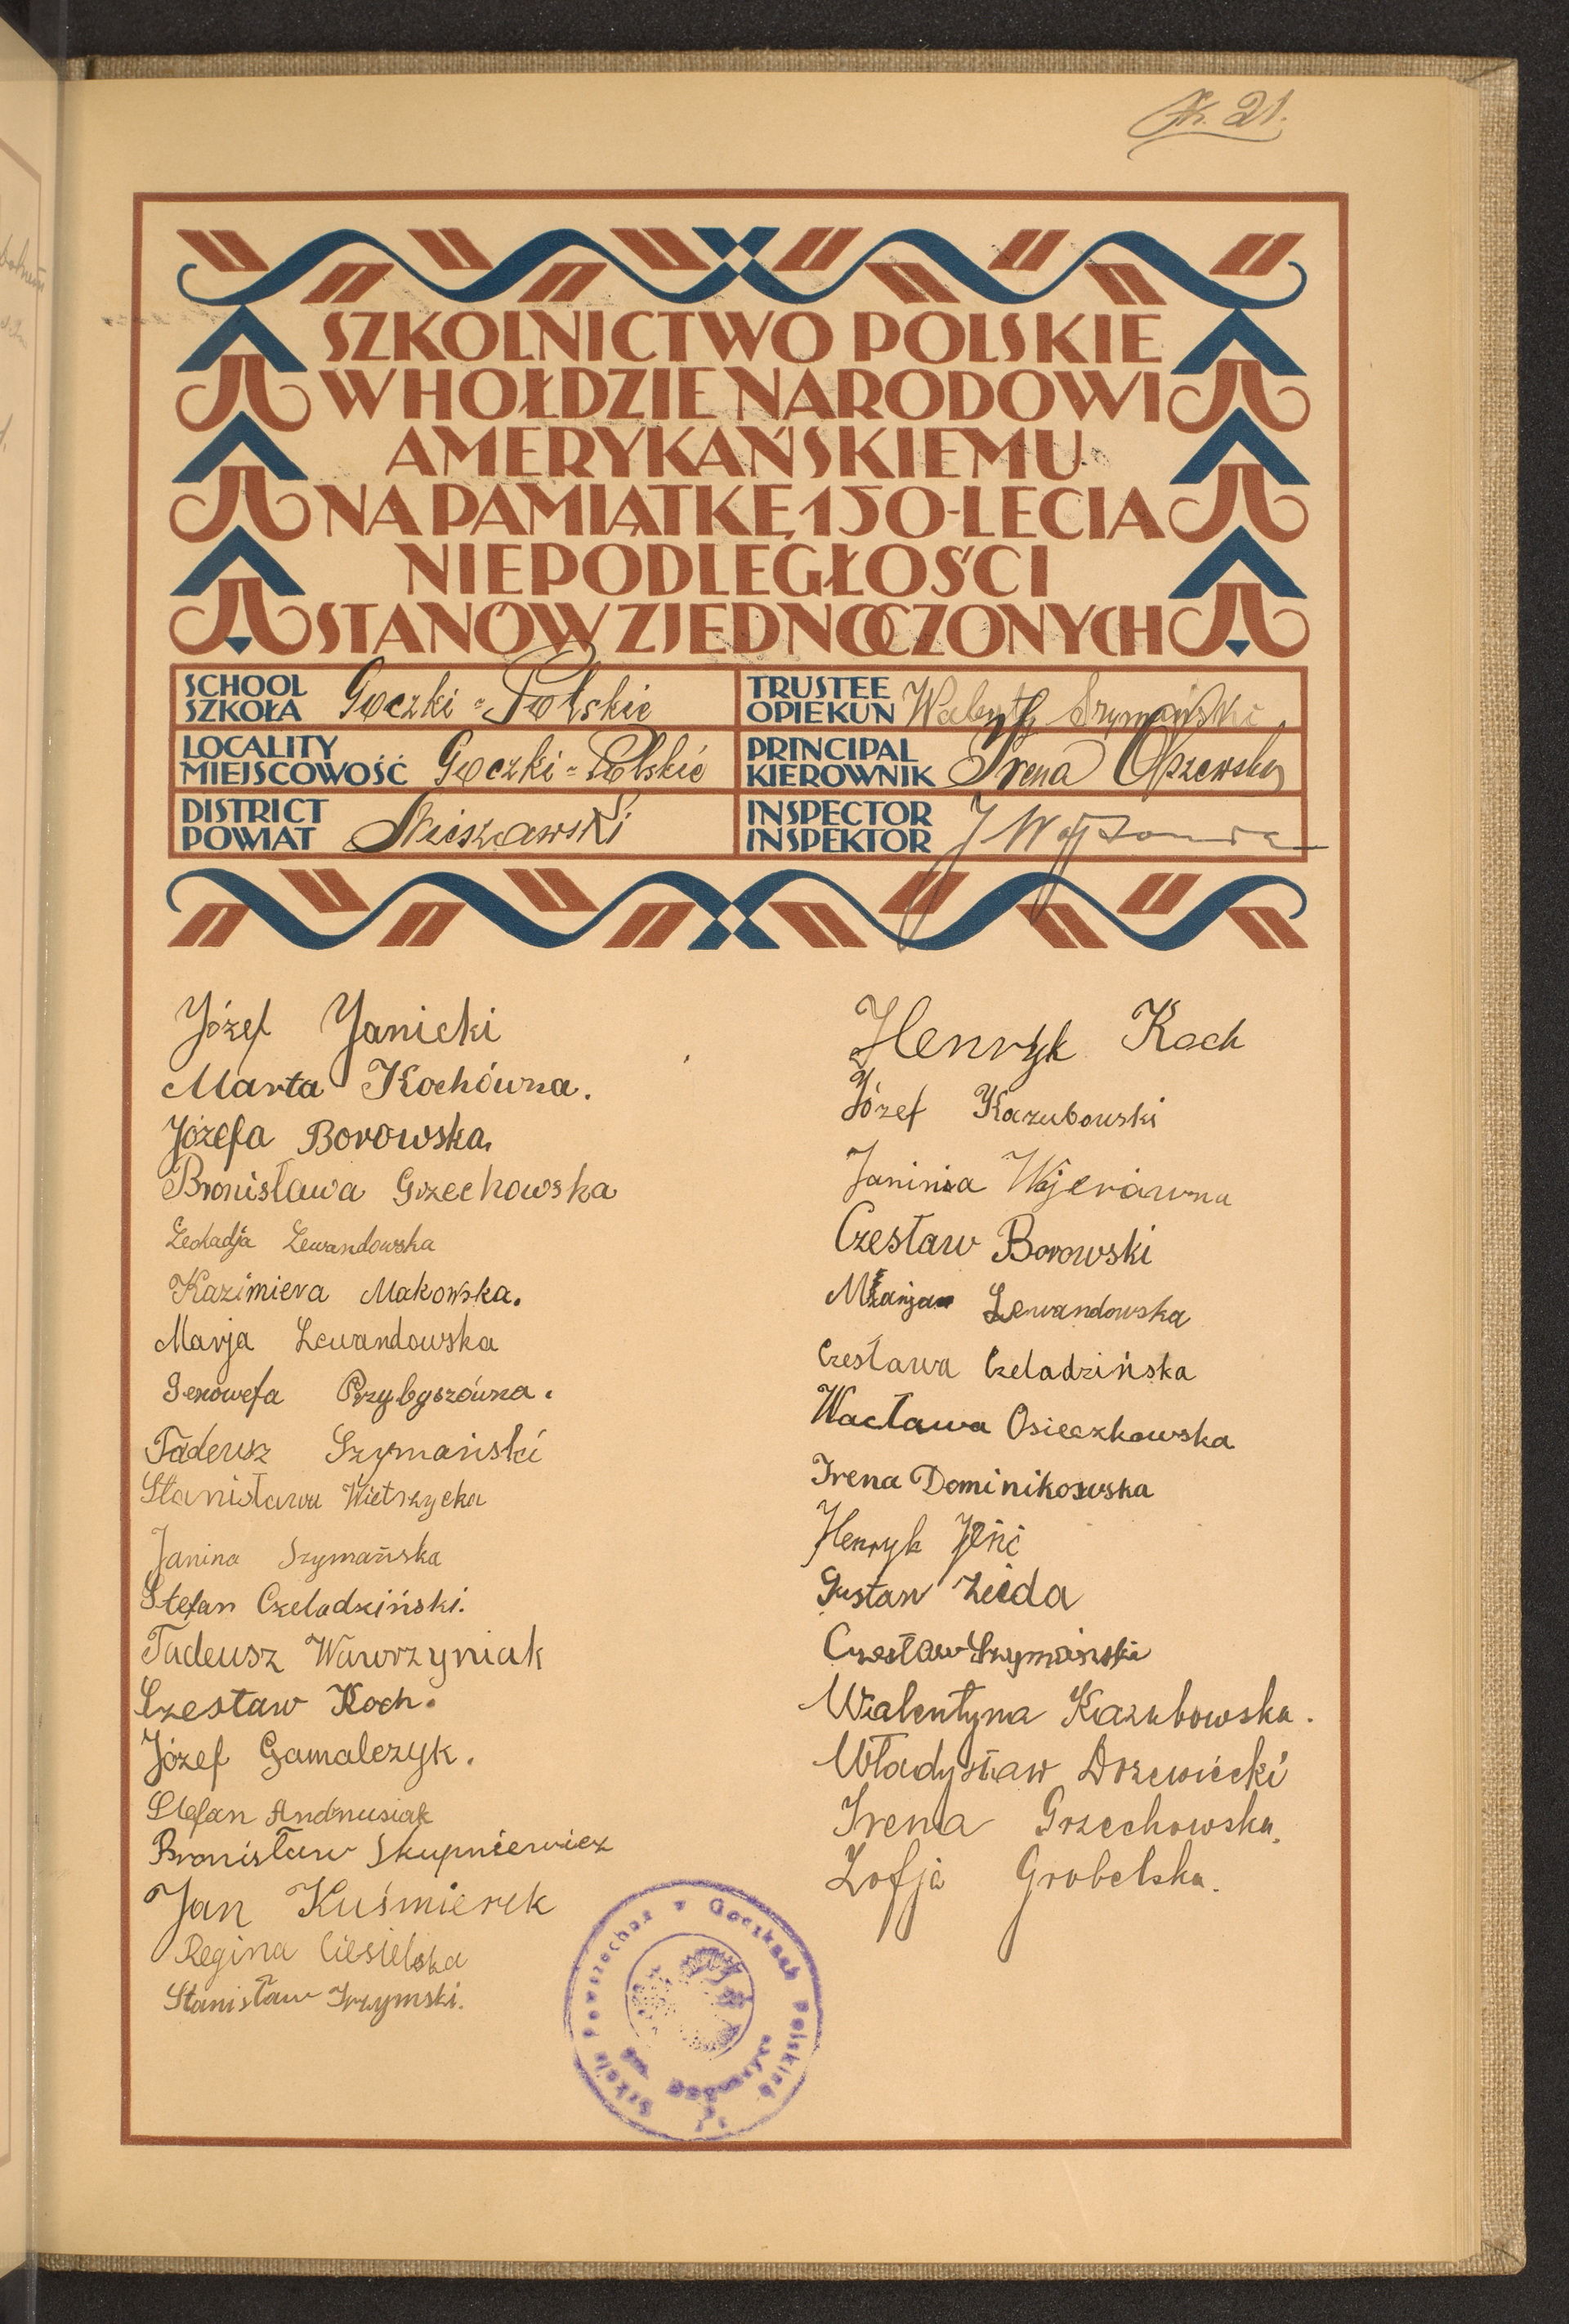 21.
SZKOLNICTWO POLSKIE
W HOŁDZIE NARODOWI
AMERYKAŃSKIEMU
NA PAMIĄTKĘ 150-LECIA
NIEPODLEGŁOŚCI
STANÓW ZJEDNOCZONYCH
SCHOOL
SZKOŁA Goczki-Polskie
TRUSTEE
OPIEKUN Walenty Szymański
LOCALITY
MIEJSCOWOŚĆ Goczki-Polskie
PRINCIPAL
KIEROWNIK Irena Olszewska
DISTRICT
POWIAT Nieszawski
INSPECTOR
INSPEKTOR
Józef Janicki
Marta Kochówna.
Józefa Borowska.
Bronisława Grzechowska
Leokadja Lewandowska
Kazimiera Makowska.
Marja Lewandowska
Genowefa Przybyszówna.
Tadeusz Szymański
Stanisława Wietrzycka
Janina Szymańska
Stefan Czeladziński.
Tadeusz Wawrzyniak
Czesław Koch.
Józef Gamalczyk.
Stefan Andrusiak
Bronisław Skupniewicz
Jan Kuśmierek
Regina Ciesielska
Stanisław Trzymski.
Henryk Koch
Józef Kazubowski
Janina Wojerówna
Czesław Borowski
Marjan Lewandowska
Czesława Czeladzińska
Wacława Osieczkowska
Irena Dominikowska
Henryk
Gustaw Zeida
Czesław Szymański
Walentyna Kazubowska.
Władysław Drzewiecki
Irena Grzechowska.
Zofja Grobelska.
Szkoła Powszechna w Goczkach Polskich